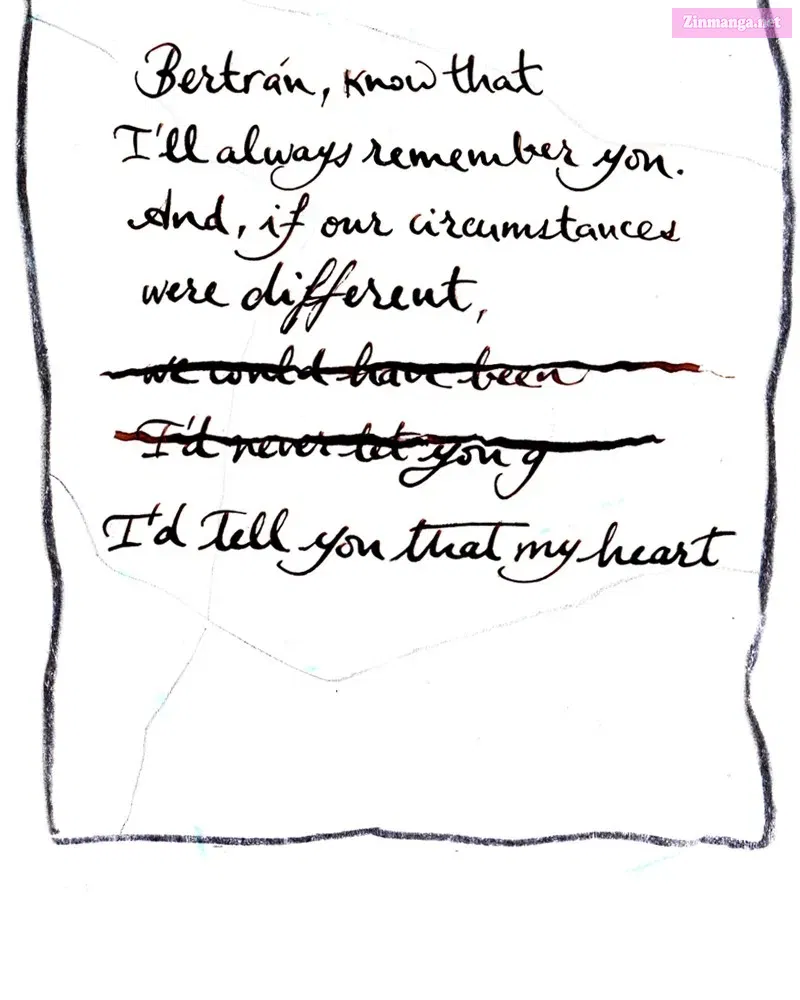 Zinmanga.net
Bertrán, know that
I'll always remember you.
And, if our circumstances
were different,
we could have been
I'd never let you g
I'd tell you that my heart